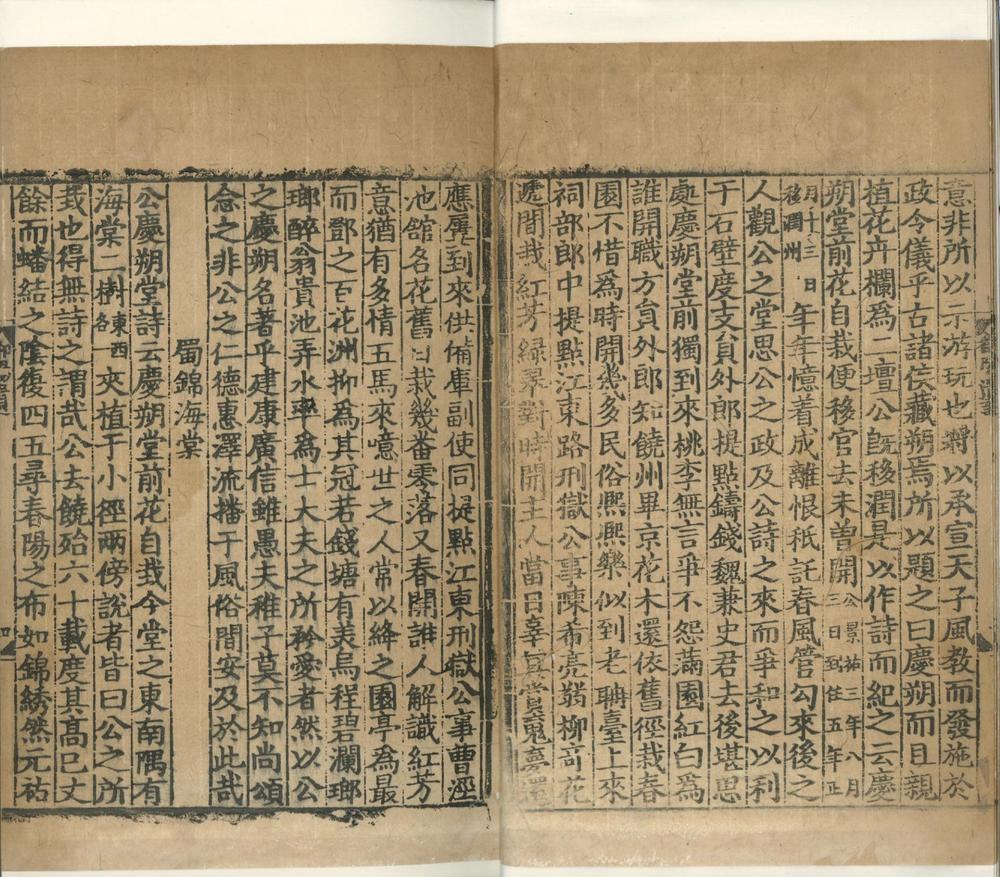 意非所以示游玩也將以承宣天子風教而發施於
政令儀乎古諸侯藏朔焉所以題之曰慶朔而且親
植花卉欄爲二壇公旣移潤是以作詩而紀之云慶
朔堂前花自栽便移官去未曽開公景祐三年八月三日到任五年正
月十三日移潤州年年憶着成離恨秖託春風管勾來後之
人觀公之堂思公之政及公詩之來而爭和之以利
于石壁度支貟外郎提點鑄錢魏兼史君去後堪思
處慶朔堂前獨到來桃李無言爭不怨滿園紅白爲
誰開職方貟外郎知饒州畢京花木還依舊徑栽春
園不惜爲時開幾多民俗熈熈樂似到老聃臺上來
祠部郎中提點江東路刑獄公事陳希亮翡柳竒花
遞間栽紅芳緑翠對時開主人當日辜真賞魂夢還
應屢到來供備庫副使同提點江東刑獄公事曹涇
池舘名花舊日栽幾番零落又春開誰人解識紅芳
意猶有多情五馬來噫世之人常以絳之園亭爲最
而鄧之百花洲抑爲其冠若錢塘有美烏程碧瀾瑯
瑯醉翁貴池弄水率爲士大夫之所矜愛者然以公
之慶朔名著乎建康廣信雖愚夫稚子莫不知尚頌
念之非公之仁德惠澤流播于風俗間安及於此哉
蜀錦海棠
公慶朔堂詩云慶朔堂前花自栽今堂之東南隅有
海棠二樹東西各夾植于小徑兩傍說者皆曰公之所
栽也得無詩之謂哉公去饒殆六十載度其髙已丈
餘而蟠結之陰復四五尋春陽之布如錦綉然元祐